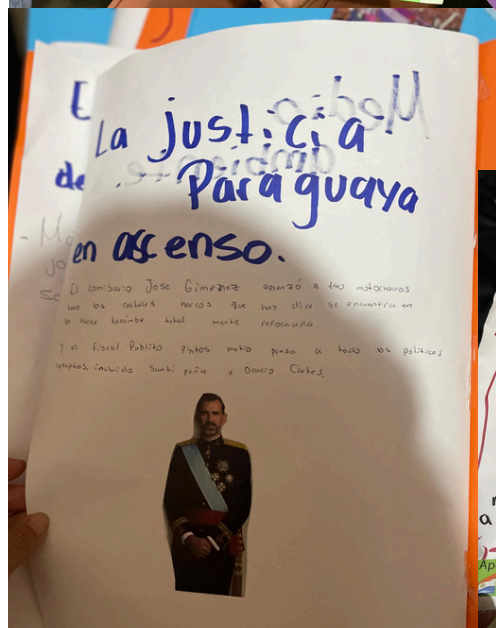 La justicia
Paraguaya
en ascenso.
El comisario Jose Gimenez a los motochorros
los carteles narcos que hoy dia se encuentra en
total mente reformada.
y el fiscal Pablito Pintos metio preso a todo los politicos
incluido Santi peña y Oracio Cartes.
E
de
- Ma
Jo
Sc
a
Ap